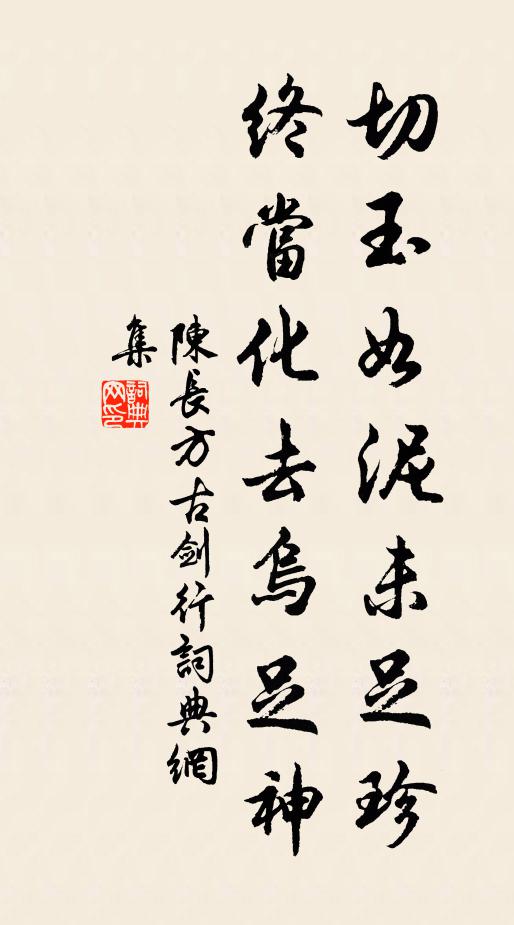 切玉如泥未足珍
終當化去烏足神
陳長方古劍行詞典網
集
詞典网印